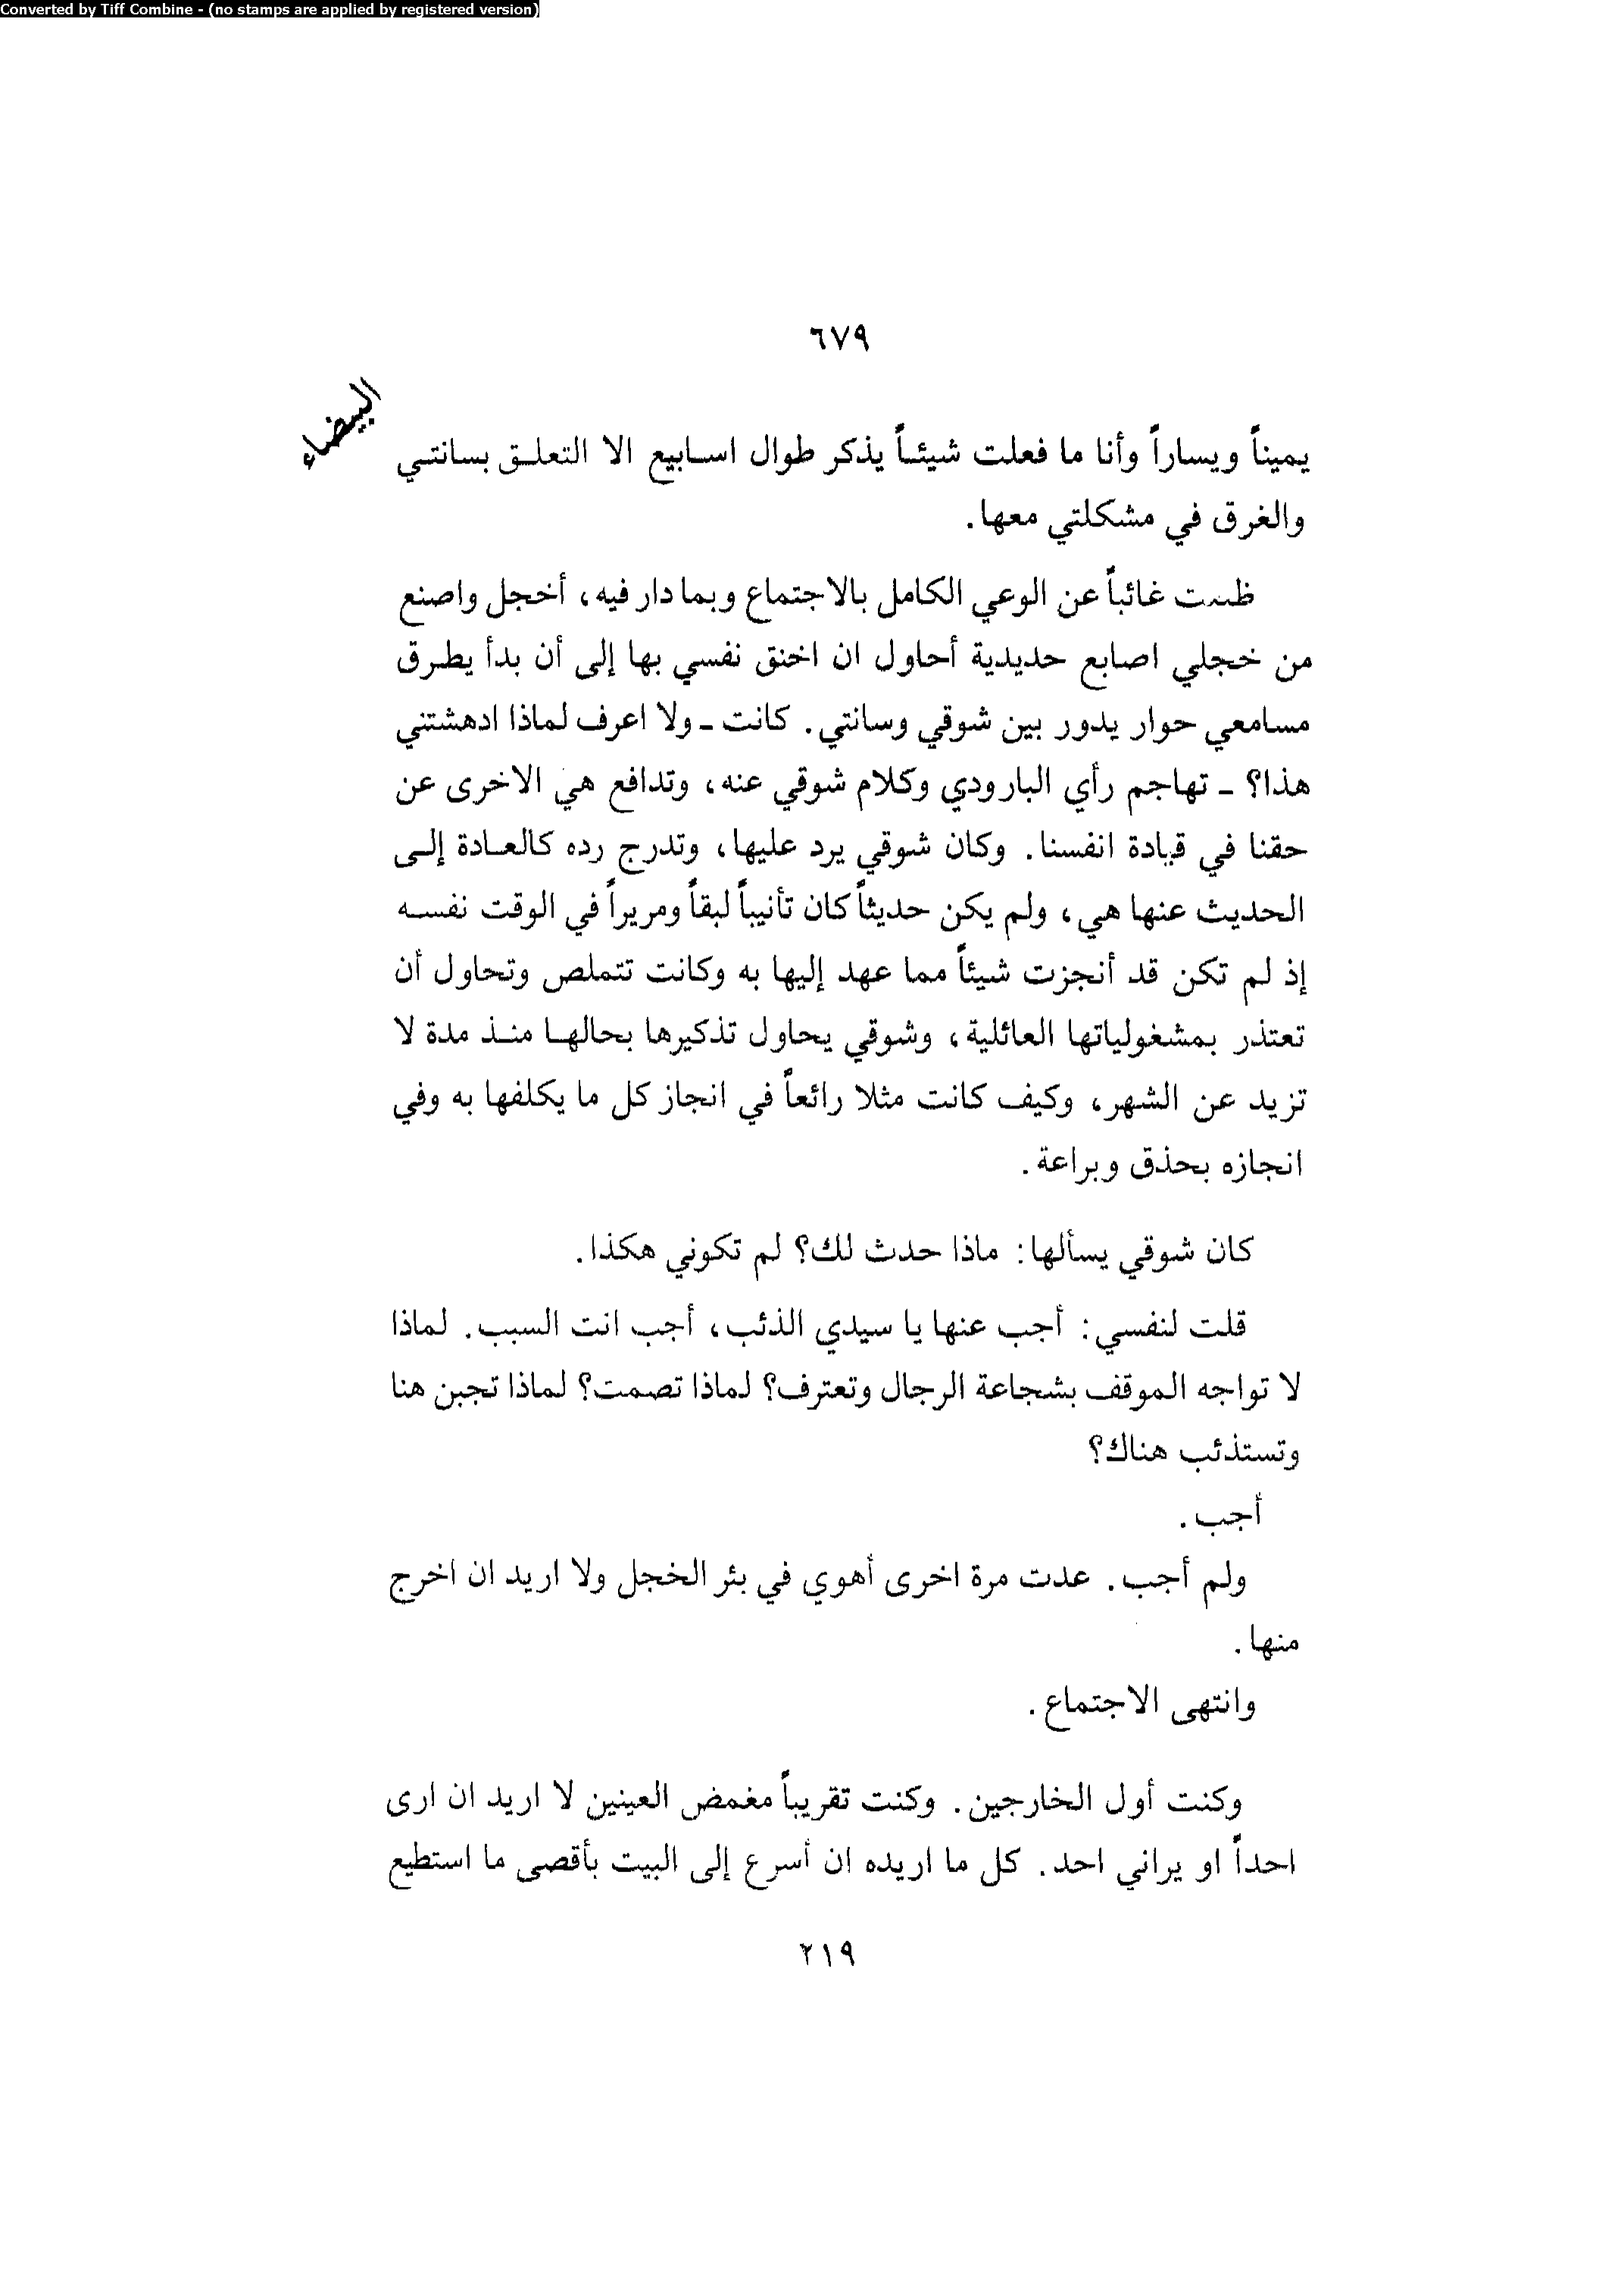 Converted by Tiff Combine - (no stamps are applied by registered version)
٦٧٩
البيضاء
يميناً ويساراً وأنا ما فعلت شيئاً يذكر طوال اسابيع الا التعلق بسانتي
والغرق في مشكلتي معها.
ظللت غائباً عن الوعي الكامل بالاجتماع وبما دار فيه، أخجل واصنع
من خجلي اصابع حديدية أحاول ان اخنق نفسي بها إلى أن بدأ يطرق
مسامعي حوار يدور بين شوقي وسانتي. كانت ـ ولا اعرف لماذا ادهشتني
هذا؟ ـ تهاجم رأي البارودي وكلام شوقي عنه، وتدافع هي الاخرى عن
حقنا في قيادة انفسنا. وكان شوقي يرد عليها، وتدرج رده كالعادة إلى
الحديث عنها هي، ولم يكن حديثاً كان تأنيباً لبقاً ومريراً في الوقت نفسه
إذ لم تكن قد أنجزت شيئاً مما عهد إليها به وكانت تتملص وتحاول أن
تعتذر بمشغولياتها العائلية، وشوقي يحاول تذكيرها بحالها منذ مدة لا
تزيد عن الشهر، وكيف كانت مثلا رائعاً في انجاز كل ما يكلفها به وفي
انجازه بحذق وبراعة.
كان شوقي يسألها: ماذا حدث لك؟ لم تكوني هكذا.
قلت لنفسي: أجب عنها يا سيدي الذئب، أجب انت السبب. لماذا
لا تواجه الموقف بشجاعة الرجال وتعترف؟ لماذا تصمت؟ لماذا تجبن هنا
وتستذئب هناك؟
أجب.
ولم أجب. عدت مرة اخرى أهوي في بئر الخجل ولا اريد ان اخرج
منها.
وانتهى الاجتماع.
وكنت أول الخارجين. وكنت تقريباً مغمض العينين لا اريد ان ارى
احداً او يراني احد. كل ما اريده ان أسرع إلى البيت بأقصى ما استطيع
٢١٩